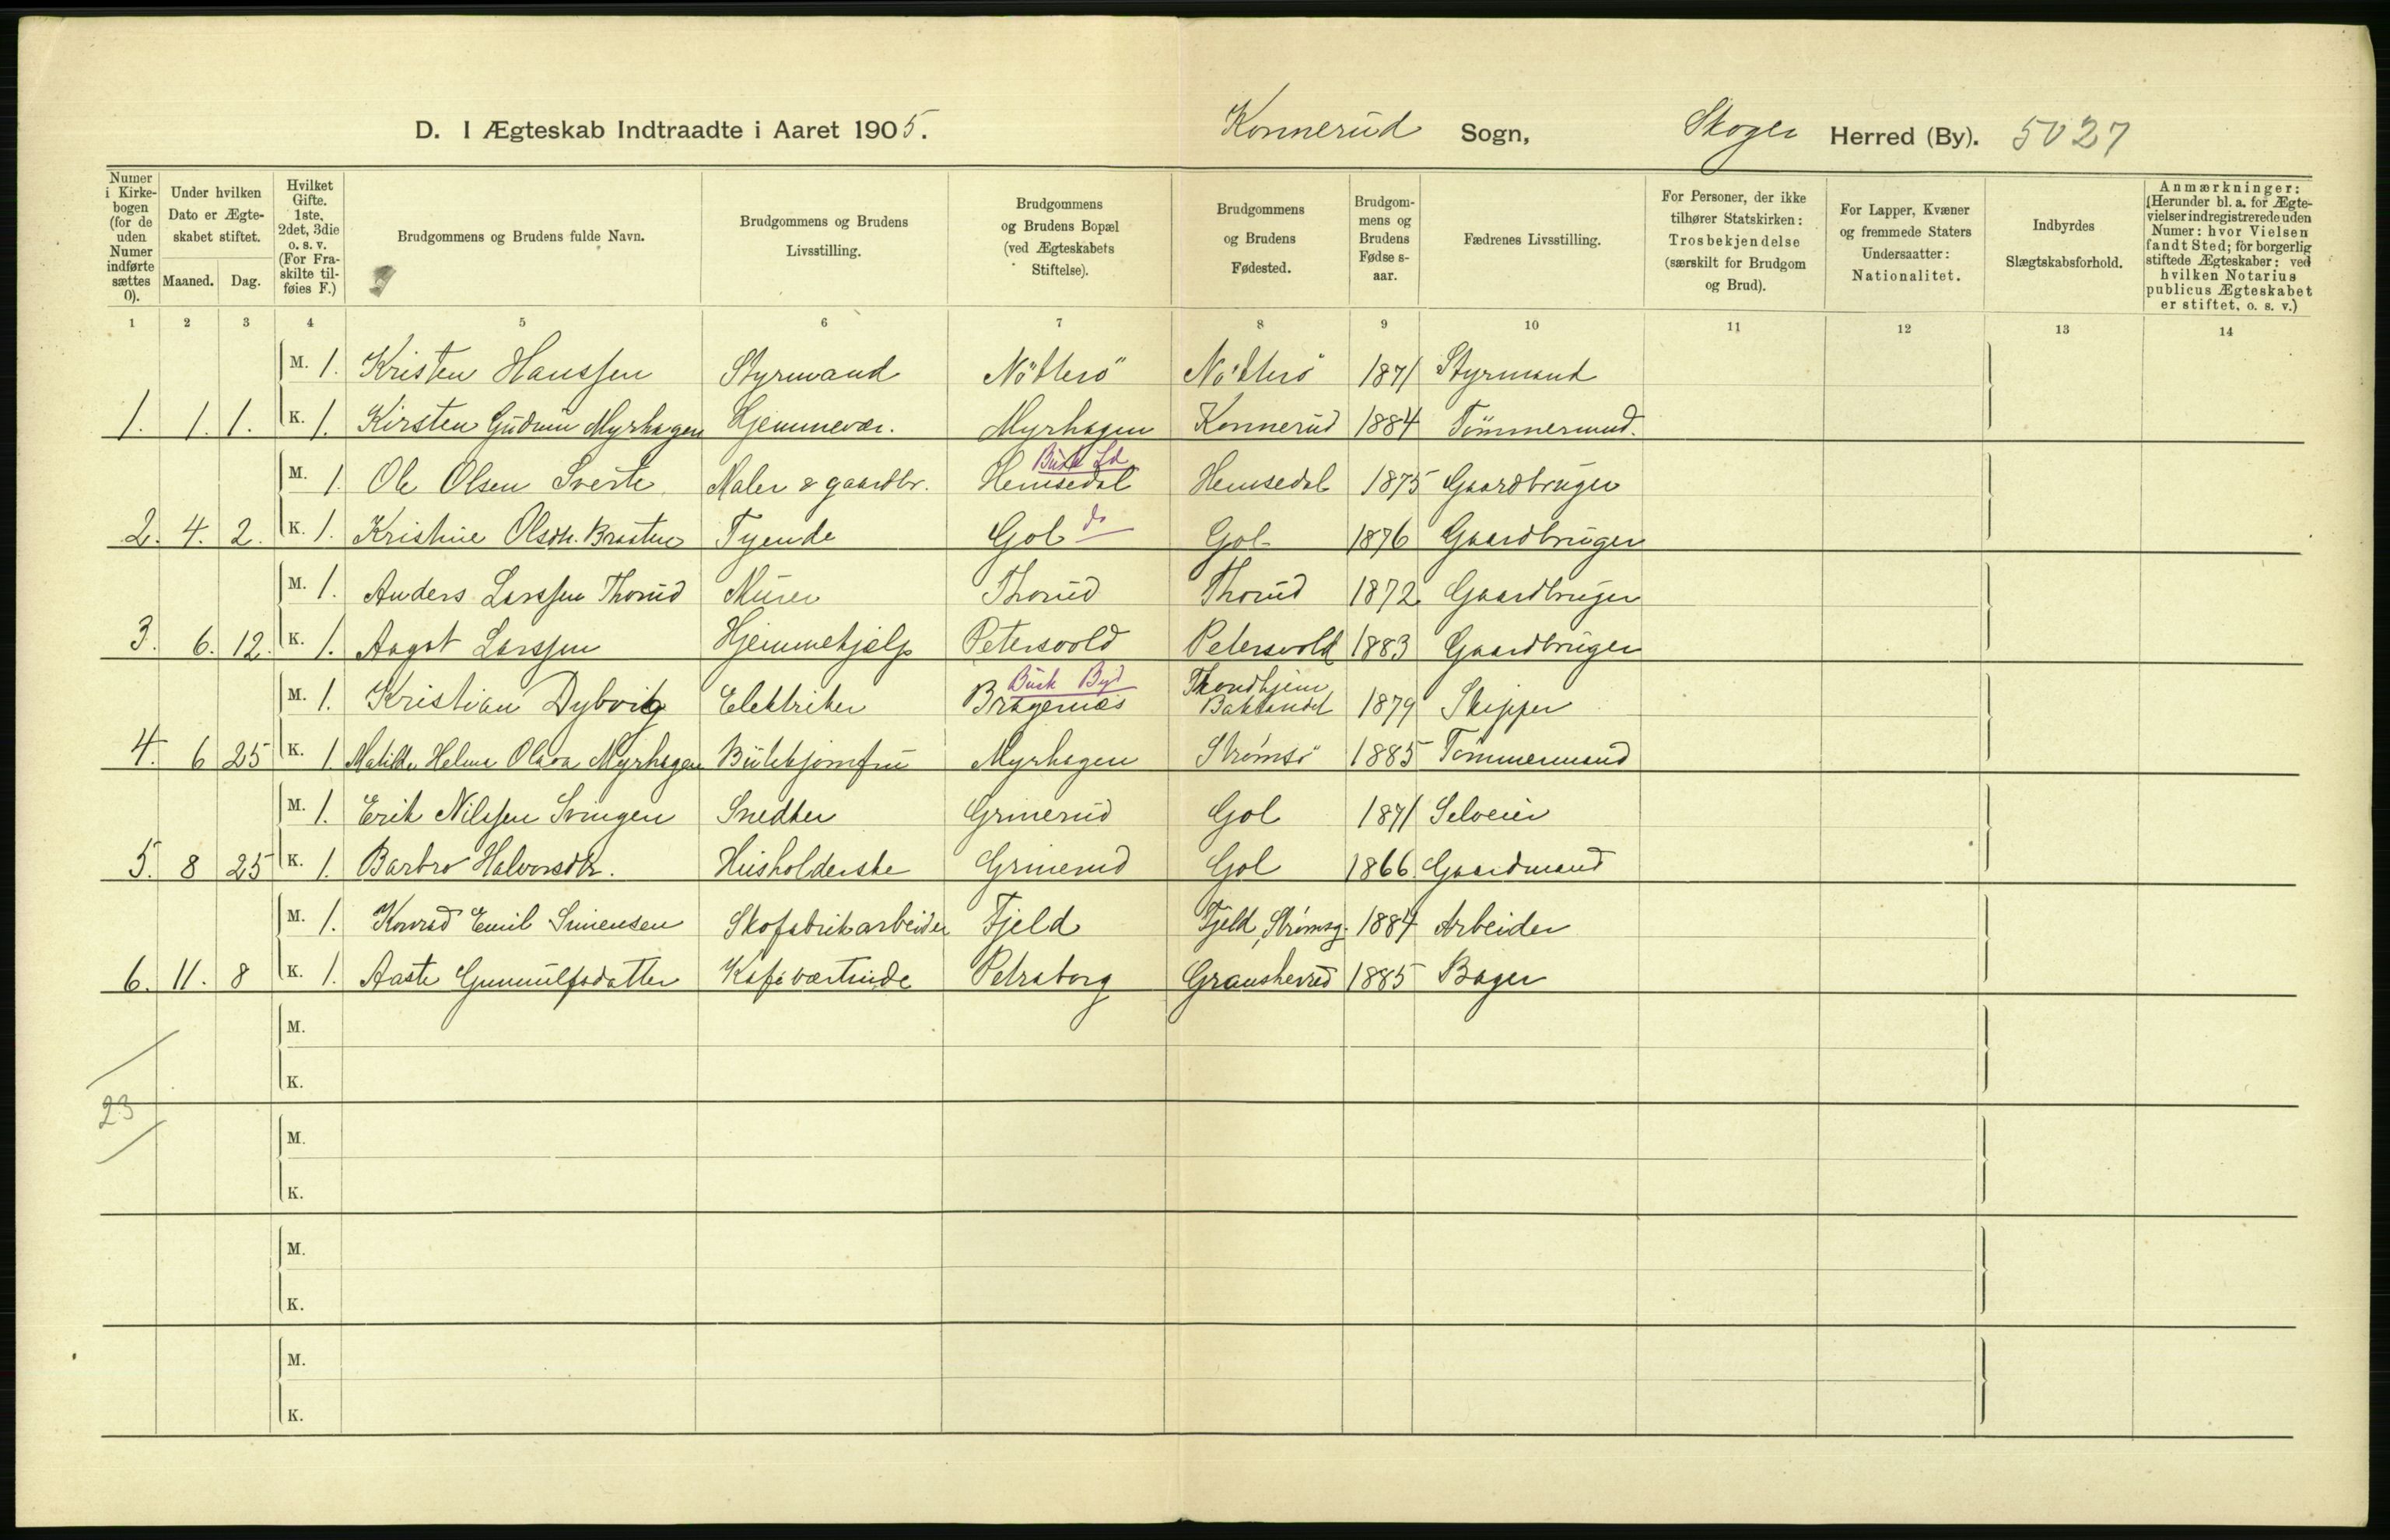 D. I Ægteskab Indtraadte i Aaret 1905. Konnerud Sogn, Skoger Herred (By). 5027
Numer i Kirkebogen (for de uden Numer indførte sættes 0).
Under hvilken Dato er Ægteskabet stiftet.
Maaned. Dag.
Hvilket Gifte. 1ste, 2det, 3die o. s. v. (For Fraskilte tilføies F.)
Brudgommens og Brudens fulde Navn.
Brudgommens og Brudens Livsstilling.
Brudgommens og Brudens Bopæl (ved Ægteskabets Stiftelse).
Brudgommens og Brudens Fødested.
Brudgommens og Brudens Fødse s-aar.
Fædrenes Livsstilling.
For Personer, der ikke tilhører Statskirken: Trosbekjendelse (særskilt for Brudgom og Brud).
For Lapper, Kvæner og fremmede Staters Undersaatter: Nationalitet.
Indbyrdes Slægtskabsforhold.
Anmærkninger: (Herunder bl. a. for Ægtevielser indregistrerede uden Numer: hvor Vielsen fandt Sted; for borgerlig stiftede Ægteskaber: ved hvilken Notarius publicus Ægteskabet er stiftet, o. s. v.)
1 2 3 4 5 6 7 8 9 10 11 12 13 14
M. 1. Kristen Hanssen Styrmand Nötterö Nötterö 1871 Styrmand
1. 1. 1. K. 1. Kirsten Gudrun Myrhagen Hjemmevær. Myrhagen Konnerud 1884 Tömmermand.
Busk Ld
M. 1. Ole Olsen Maler & gaardbr. Hemsedal Hemsedal 1875 Gaardbruger
2. 4. 2. K. 1. Kristine Olsdtr. Braaten Tyende Gol do Gol 1876 Gaardbruger
M. 1. Anders Larssen Thorud Murer Thorud Thorud 1872 Gaardbruger
3. 6. 12. K. 1. Aagot Larssen Hjemmehjælp Petersvold Petersvold 1883 Gaardbruger
Busk Byd Throndhjem
M. 1. Kristian Dybvig Elektriker Bragernæs Baklandet 1879 Skipper
4. 6 25 K. 1. Matilde Helma Olava Myrhagen Butikjomfru Myrhagen Strømsö 1885 Tömmermand
M. 1. Erik Nilssen Svingen Snedker Grinerud Gol 1871 Selveier
5. 8 25 K. 1. Barbro Halvorsdtr. Husholderske Grinerud Gol 1866 Gaardmand
M. 1. Konrad Emil Simensen Skofabrikarbeider Fjeld Fjeld, Strømsg. 1884 Arbeider
6. 11. 8 K. 1. Aaste Gunnulfsdatter Kafeværtinde Petraborg Gransherred 1885 Bager
M.
K.
23
M.
K.
M.
K.
M.
K.